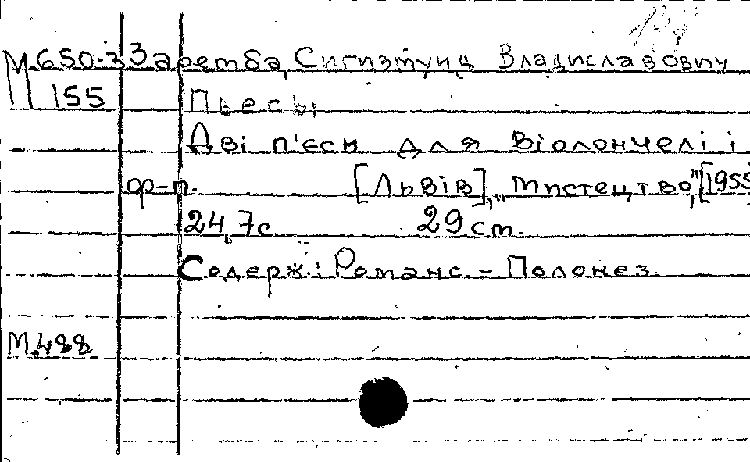 М.650-3 Заремба, Сигизмунд Владиславович
155 Пьесы
Дві п'єси для віолончелі і
ф-п. [Львів], „Мистецтво", [1955
24,7с 29 см.
Содерж: Романс. - Полонез.
М.488